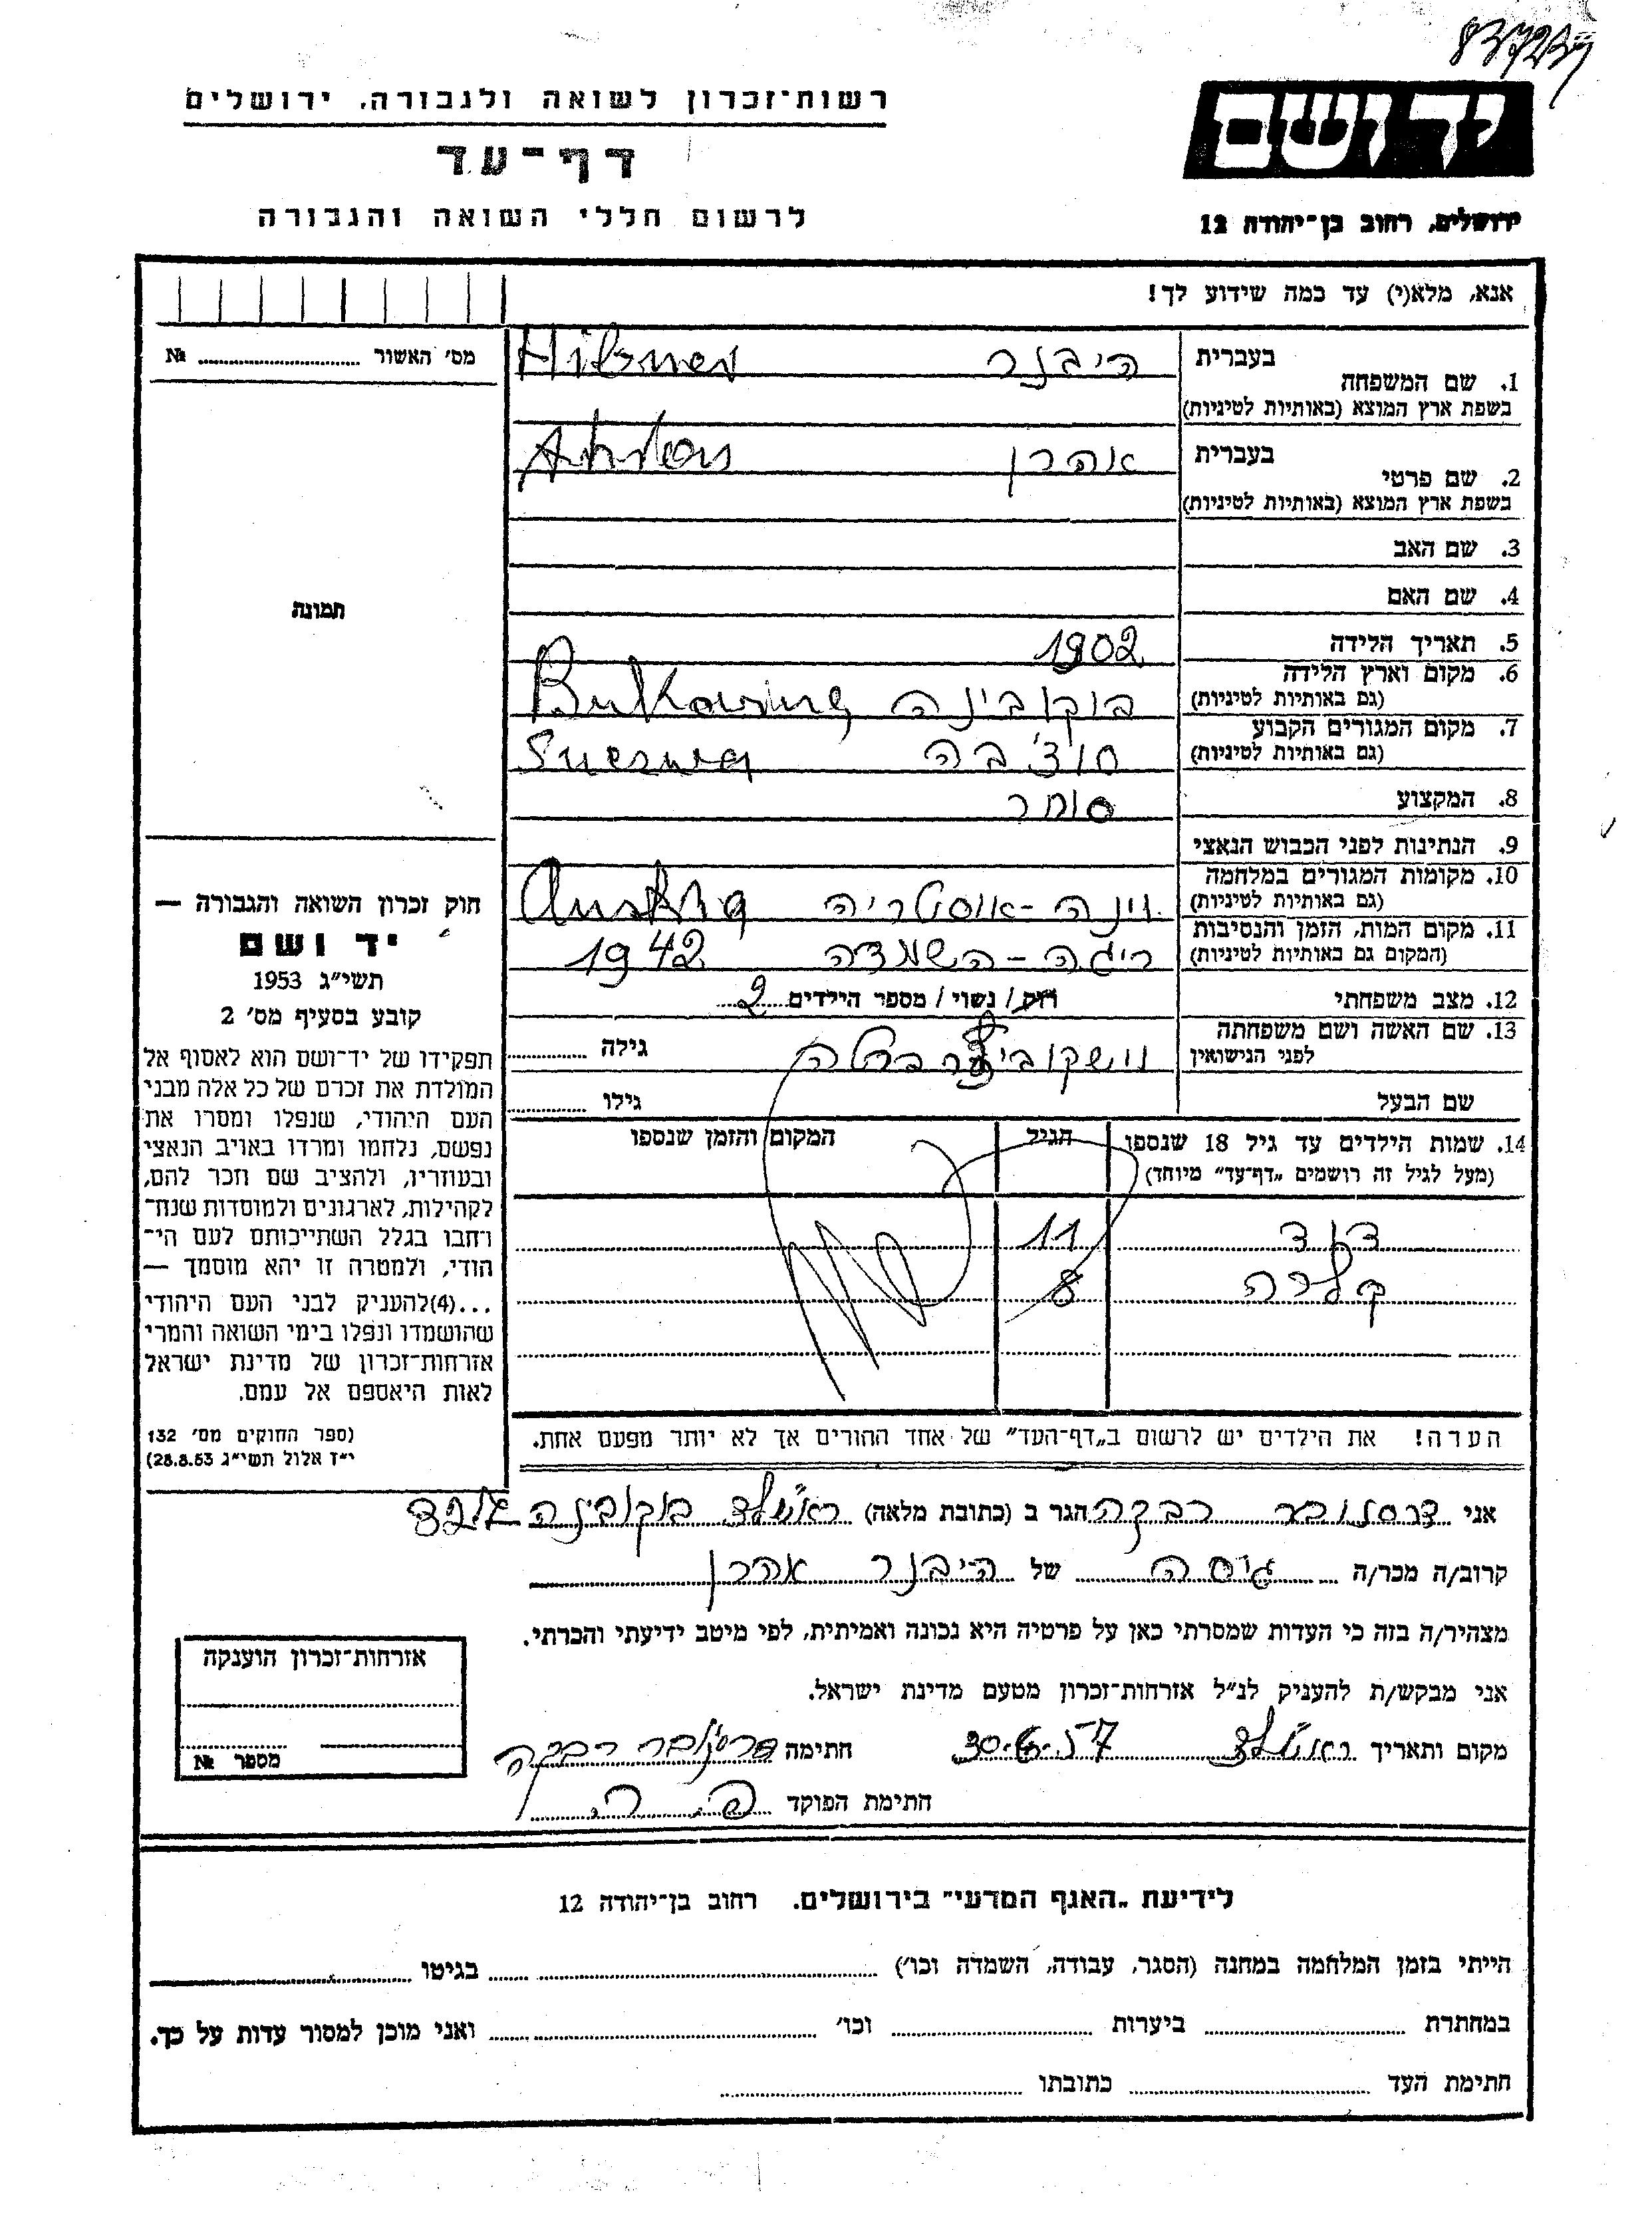 רשות־זכרון לשואה ולגבורה, ירושלים
דף־עד
לרשום חללי השואה והגבורה
יד ושם
ירושלים, רחוב בן־יהודה 12
אנא, מלא(י) עד כמה שידוע לך!
מס' האשור № ..........
תמונה
בעברית היבנר Hibner
1. שם המשפחה
בשפת ארץ המוצא (באותיות לטיניות)
בעברית אהרן
2. שם פרטי
בשפת ארץ המוצא (באותיות לטיניות)
3. שם האב
4. שם האם
5. תאריך הלידה 1902
6. מקום וארץ הלידה בוקובינה Bukowina
(גם באותיות לטיניות)
7. מקום המגורים הקבוע סוצ'בה
(גם באותיות לטיניות)
8. המקצוע סוחר
9. הנתינות לפני הכבוש הנאצי
10. מקומות המגורים במלחמה וינה-אוסטריה Austria
(גם באותיות לטיניות)
11. מקום המות, הזמן והנסיבות ריגה-השמדה 1942
(המקום גם באותיות לטיניות)
12. מצב משפחתי רוק / נשוי / מספר הילדים 2
13. שם האשה ושם משפחתה גילה ..........
לפני הנישואין
שם הבעל גילו ..........
14. שמות הילדים עד גיל 18 שנספו הגיל המקום והזמן שנספו
(מעל לגיל זה רושמים "דף־עד" מיוחד)
דוד 11
קלרה 8
הערה! את הילדים יש לרשום ב"דף־העד" של אחד ההורים אך לא יותר מפעם אחת.
חוק זכרון השואה והגבורה —
יד ושם
תשי"ג 1953
קובע בסעיף מס' 2
תפקידו של יד־ושם הוא לאסוף אל
המולדת את זכרם של כל אלה מבני
העם היהודי, שנפלו ומסרו את
נפשם, נלחמו ומרדו באויב הנאצי
ובעוזריו, ולהציב שם וזכר להם,
לקהילות, לארגונים ולמוסדות שנח־
רחבו בגלל השתייכותם לעם הי־
הודי, ולמטרה זו יהא מוסמך —
...(4)להעניק לבני העם היהודי
שהושמדו ונפלו בימי השואה והמרי
אזרחות־זכרון של מדינת ישראל
לאות היאספם אל עמם.
(ספר החוקים מס' 132
י"ז אלול תשי"ג 28.8.53)
אני רבקה הגר ב (כתובת מלאה) בוקובינה
קרוב/ה מכר/ה גיסה של היבנר אהרן
מצהיר/ה בזה כי העדות שמסרתי כאן על פרטיה היא נכונה ואמיתית, לפי מיטב ידיעתי והכרתי.
אני מבקש/ת להעניק לנ"ל אזרחות־זכרון מטעם מדינת ישראל.
מקום ותאריך חתימה רבקה
חתימת הפוקד
אזרחות־זכרון הוענקה
מספר №
לידיעת "האגף המדעי" בירושלים. רחוב בן־יהודה 12
הייתי בזמן המלחמה במחנה (הסגר, עבודה, השמדה וכו') .......... בגיטו ..........
במחתרת .......... ביערות .......... וכו' .......... ואני מוכן למסור עדות על כך.
חתימת העד .......... כתובתו ..........